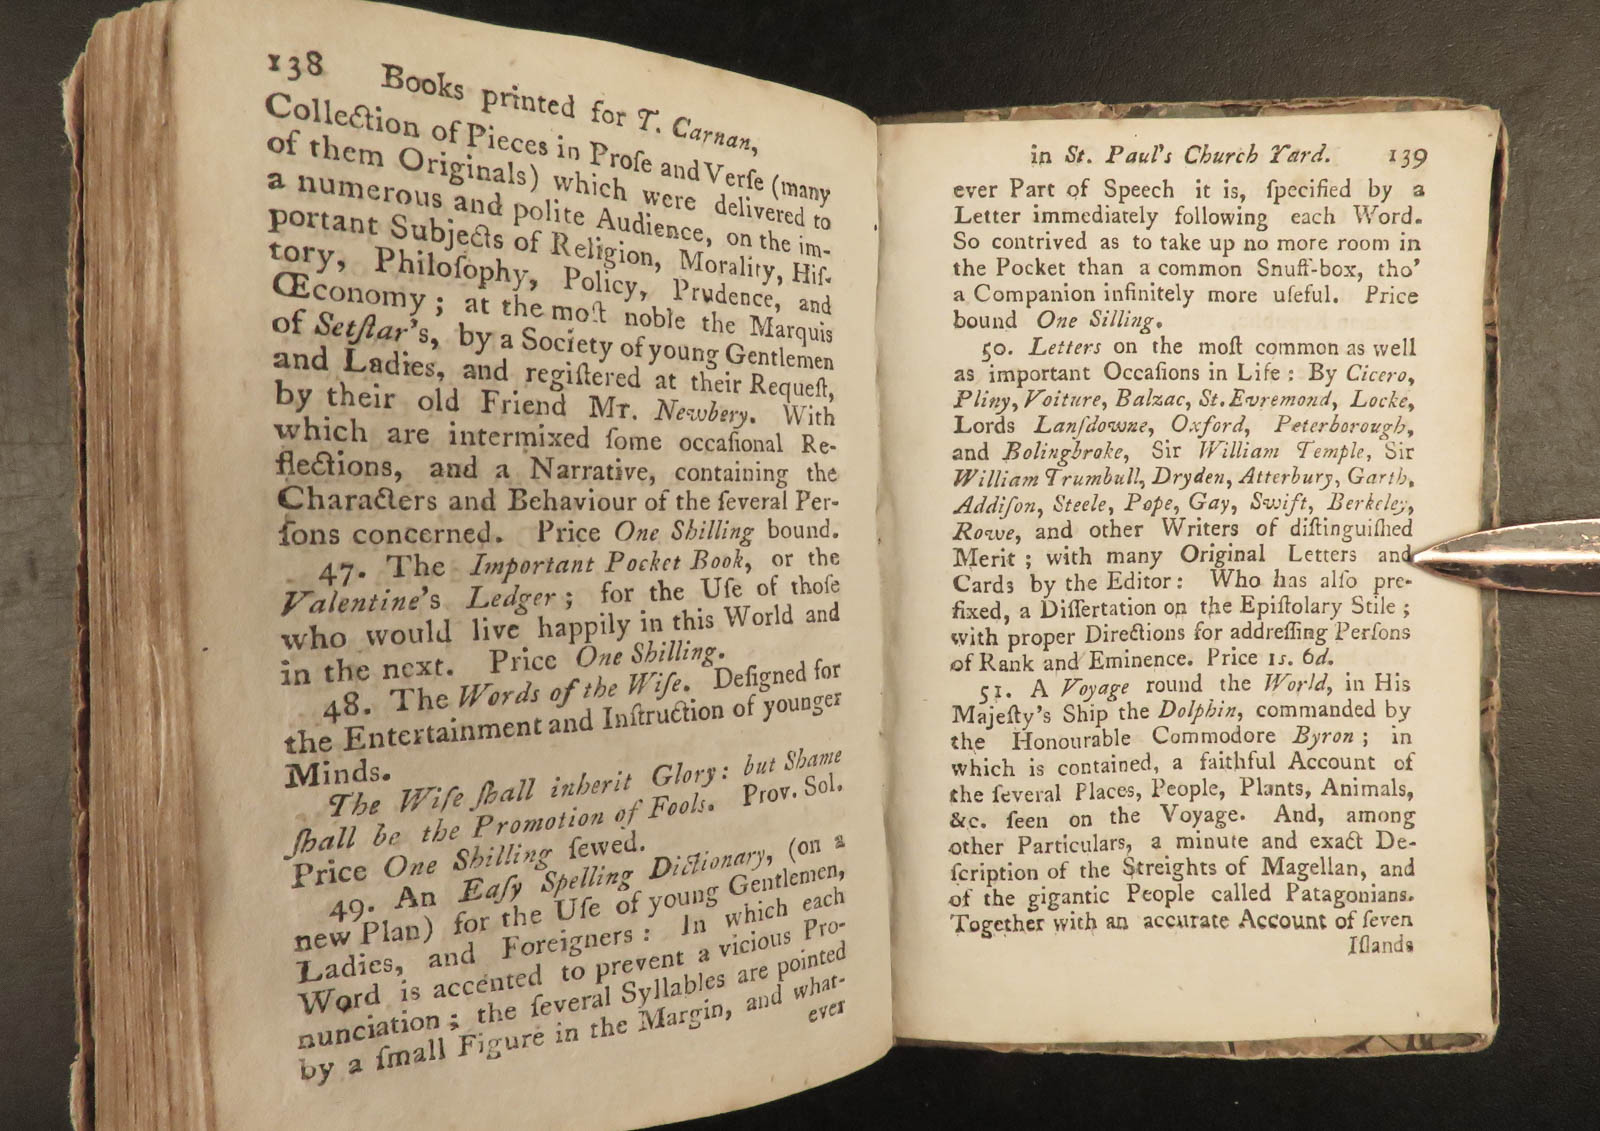 138 Books printed for T. Carnan,
Collection of Pieces in Proſe and Verſe (many
of them Originals) which were delivered to
a numerous and polite Audience, on the im-
portant Subjects of Religion, Morality, Hiſ-
tory, Philoſophy, Policy, Prudence, and
Œconomy; at the moſt noble the Marquis
of Setſtar's, by a Society of young Gentlemen
and Ladies, and regiſtered at their Requeſt,
by their old Friend Mr. Newbery. With
which are intermixed ſome occaſional Re-
flections, and a Narrative, containing the
Characters and Behaviour of the ſeveral Per-
ſons concerned. Price One Shilling bound.
47. The Important Pocket Book, or the
Valentine's Ledger; for the Uſe of thoſe
who would live happily in this World and
in the next. Price One Shilling.
48. The Words of the Wiſe. Deſigned for
the Entertainment and Inſtruction of younger
Minds.
The Wiſe ſhall inherit Glory: but Shame
ſhall be the Promotion of Fools. Prov. Sol.
Price One Shilling ſewed.
49. An Eaſy Spelling Dictionary, (on a
new Plan) for the Uſe of young Gentlemen,
Ladies, and Foreigners: In which each
Word is accented to prevent a vicious Pro-
nunciation; the ſeveral Syllables are pointed
by a ſmall Figure in the Margin, and what-
ever
in St. Paul's Church Yard. 139
ever Part of Speech it is, ſpecified by a
Letter immediately following each Word.
So contrived as to take up no more room in
the Pocket than a common Snuff-box, tho'
a Companion infinitely more uſeful. Price
bound One Silling.
50. Letters on the moſt common as well
as important Occaſions in Life: By Cicero,
Pliny, Voiture, Balzac, St. Evremond, Locke,
Lords Lanſdowne, Oxford, Peterborough,
and Bolingbroke, Sir William Temple, Sir
William Trumbull, Dryden, Atterbury, Garth,
Addiſon, Steele, Pope, Gay, Swift, Berkeley,
Rowe, and other Writers of diſtinguiſhed
Merit; with many Original Letters and
Cards by the Editor: Who has alſo pre-
fixed, a Diſſertation on the Epiſtolary Stile;
with proper Directions for addreſſing Perſons
of Rank and Eminence. Price 1s. 6d.
51. A Voyage round the World, in His
Majeſty's Ship the Dolphin, commanded by
the Honourable Commodore Byron; in
which is contained, a faithful Account of
the ſeveral Places, People, Plants, Animals,
&c. ſeen on the Voyage. And, among
other Particulars, a minute and exact De-
ſcription of the Streights of Magellan, and
of the gigantic People called Patagonians.
Together with an accurate Account of ſeven
Iſlands